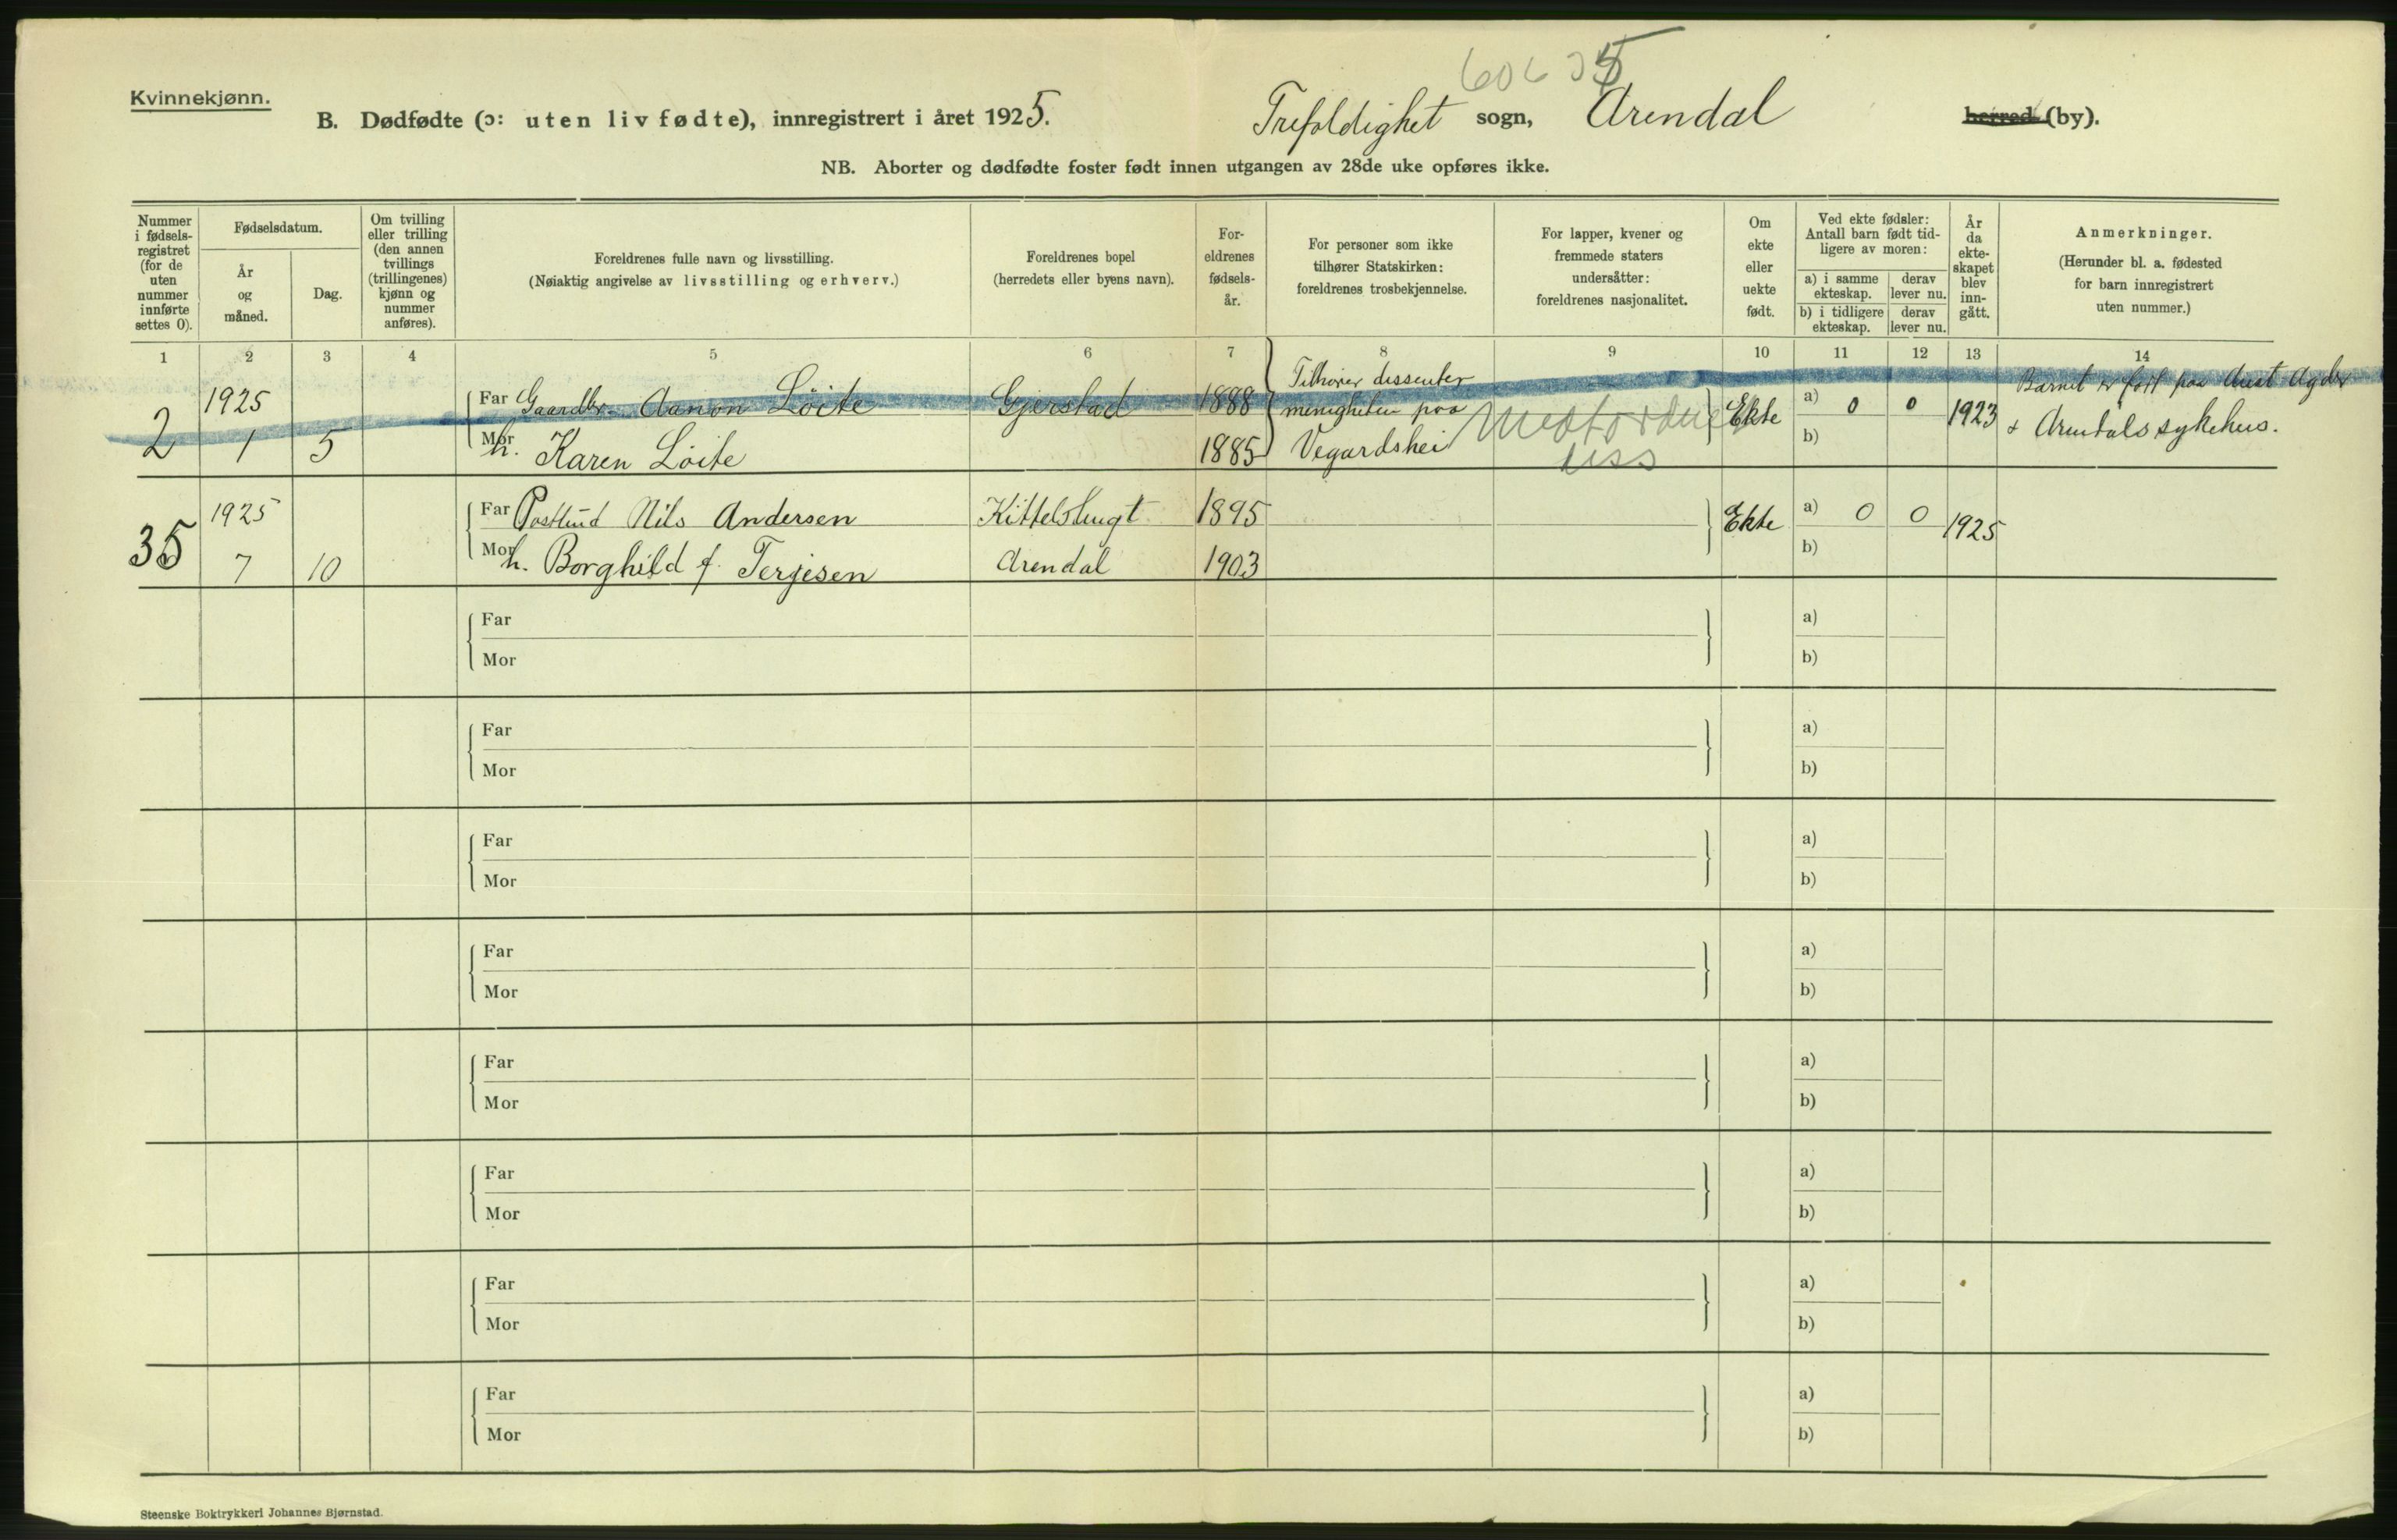 Kvinnekjønn.
B. Dødfødte (ɔ: uten liv fødte), innregistrert i året 1925.
Trefoldighet sogn, Arendal herred (by).
NB. Aborter og dødfødte foster født innen utgangen av 28de uke opføres ikke.
Nummer i fødsels-registret (for de uten nummer innførte settes 0).
Fødselsdatum.
År og måned.
Dag.
Om tvilling eller trilling (den annen tvillings (trillingenes) kjønn og nummer anføres).
Foreldrenes fulle navn og livsstilling.
(Nøiaktig angivelse av livsstilling og erhverv.)
Foreldrenes bopel
(herredets eller byens navn).
For-eldrenes fødsels-år.
For personer som ikke tilhører Statskirken: foreldrenes trosbekjennelse.
For lapper, kvener og fremmede staters undersåtter: foreldrenes nasjonalitet.
Om ekte eller uekte født.
Ved ekte fødsler: Antall barn født tid-ligere av moren:
a) i samme ekteskap.
derav lever nu.
b) i tidligere ekteskap.
derav lever nu.
År da ekte-skapet blev inn-gått.
Anmerkninger.
(Herunder bl. a. fødested for barn innregistrert uten nummer.)
1 2 3 4 5 6 7 8 9 10 11 12 13 14
2 1925 1 5
Far Gaardbr. Aanon Löite Gjerstad 1888
Mor h. Karen Löite 1885
Tilhører dissenter
menigheten paa
Vegardshei
diss
Ekte a) 0 0 1923
b)
Barnet er født paa Aust Agder
& Arendals sykehus.
35 1925 7 10
Far Postbud Nils Andersen Kittelsbugt 1895
Mor h. Borghild f. Terjesen Arendal 1903
Ekte a) 0 0 1925
b)
Far a)
Mor b)
Far a)
Mor b)
Far a)
Mor b)
Far a)
Mor b)
Far a)
Mor b)
Far a)
Mor b)
Far a)
Mor b)
Far a)
Mor b)
Steenske Boktrykkeri Johannes Bjørnstad.